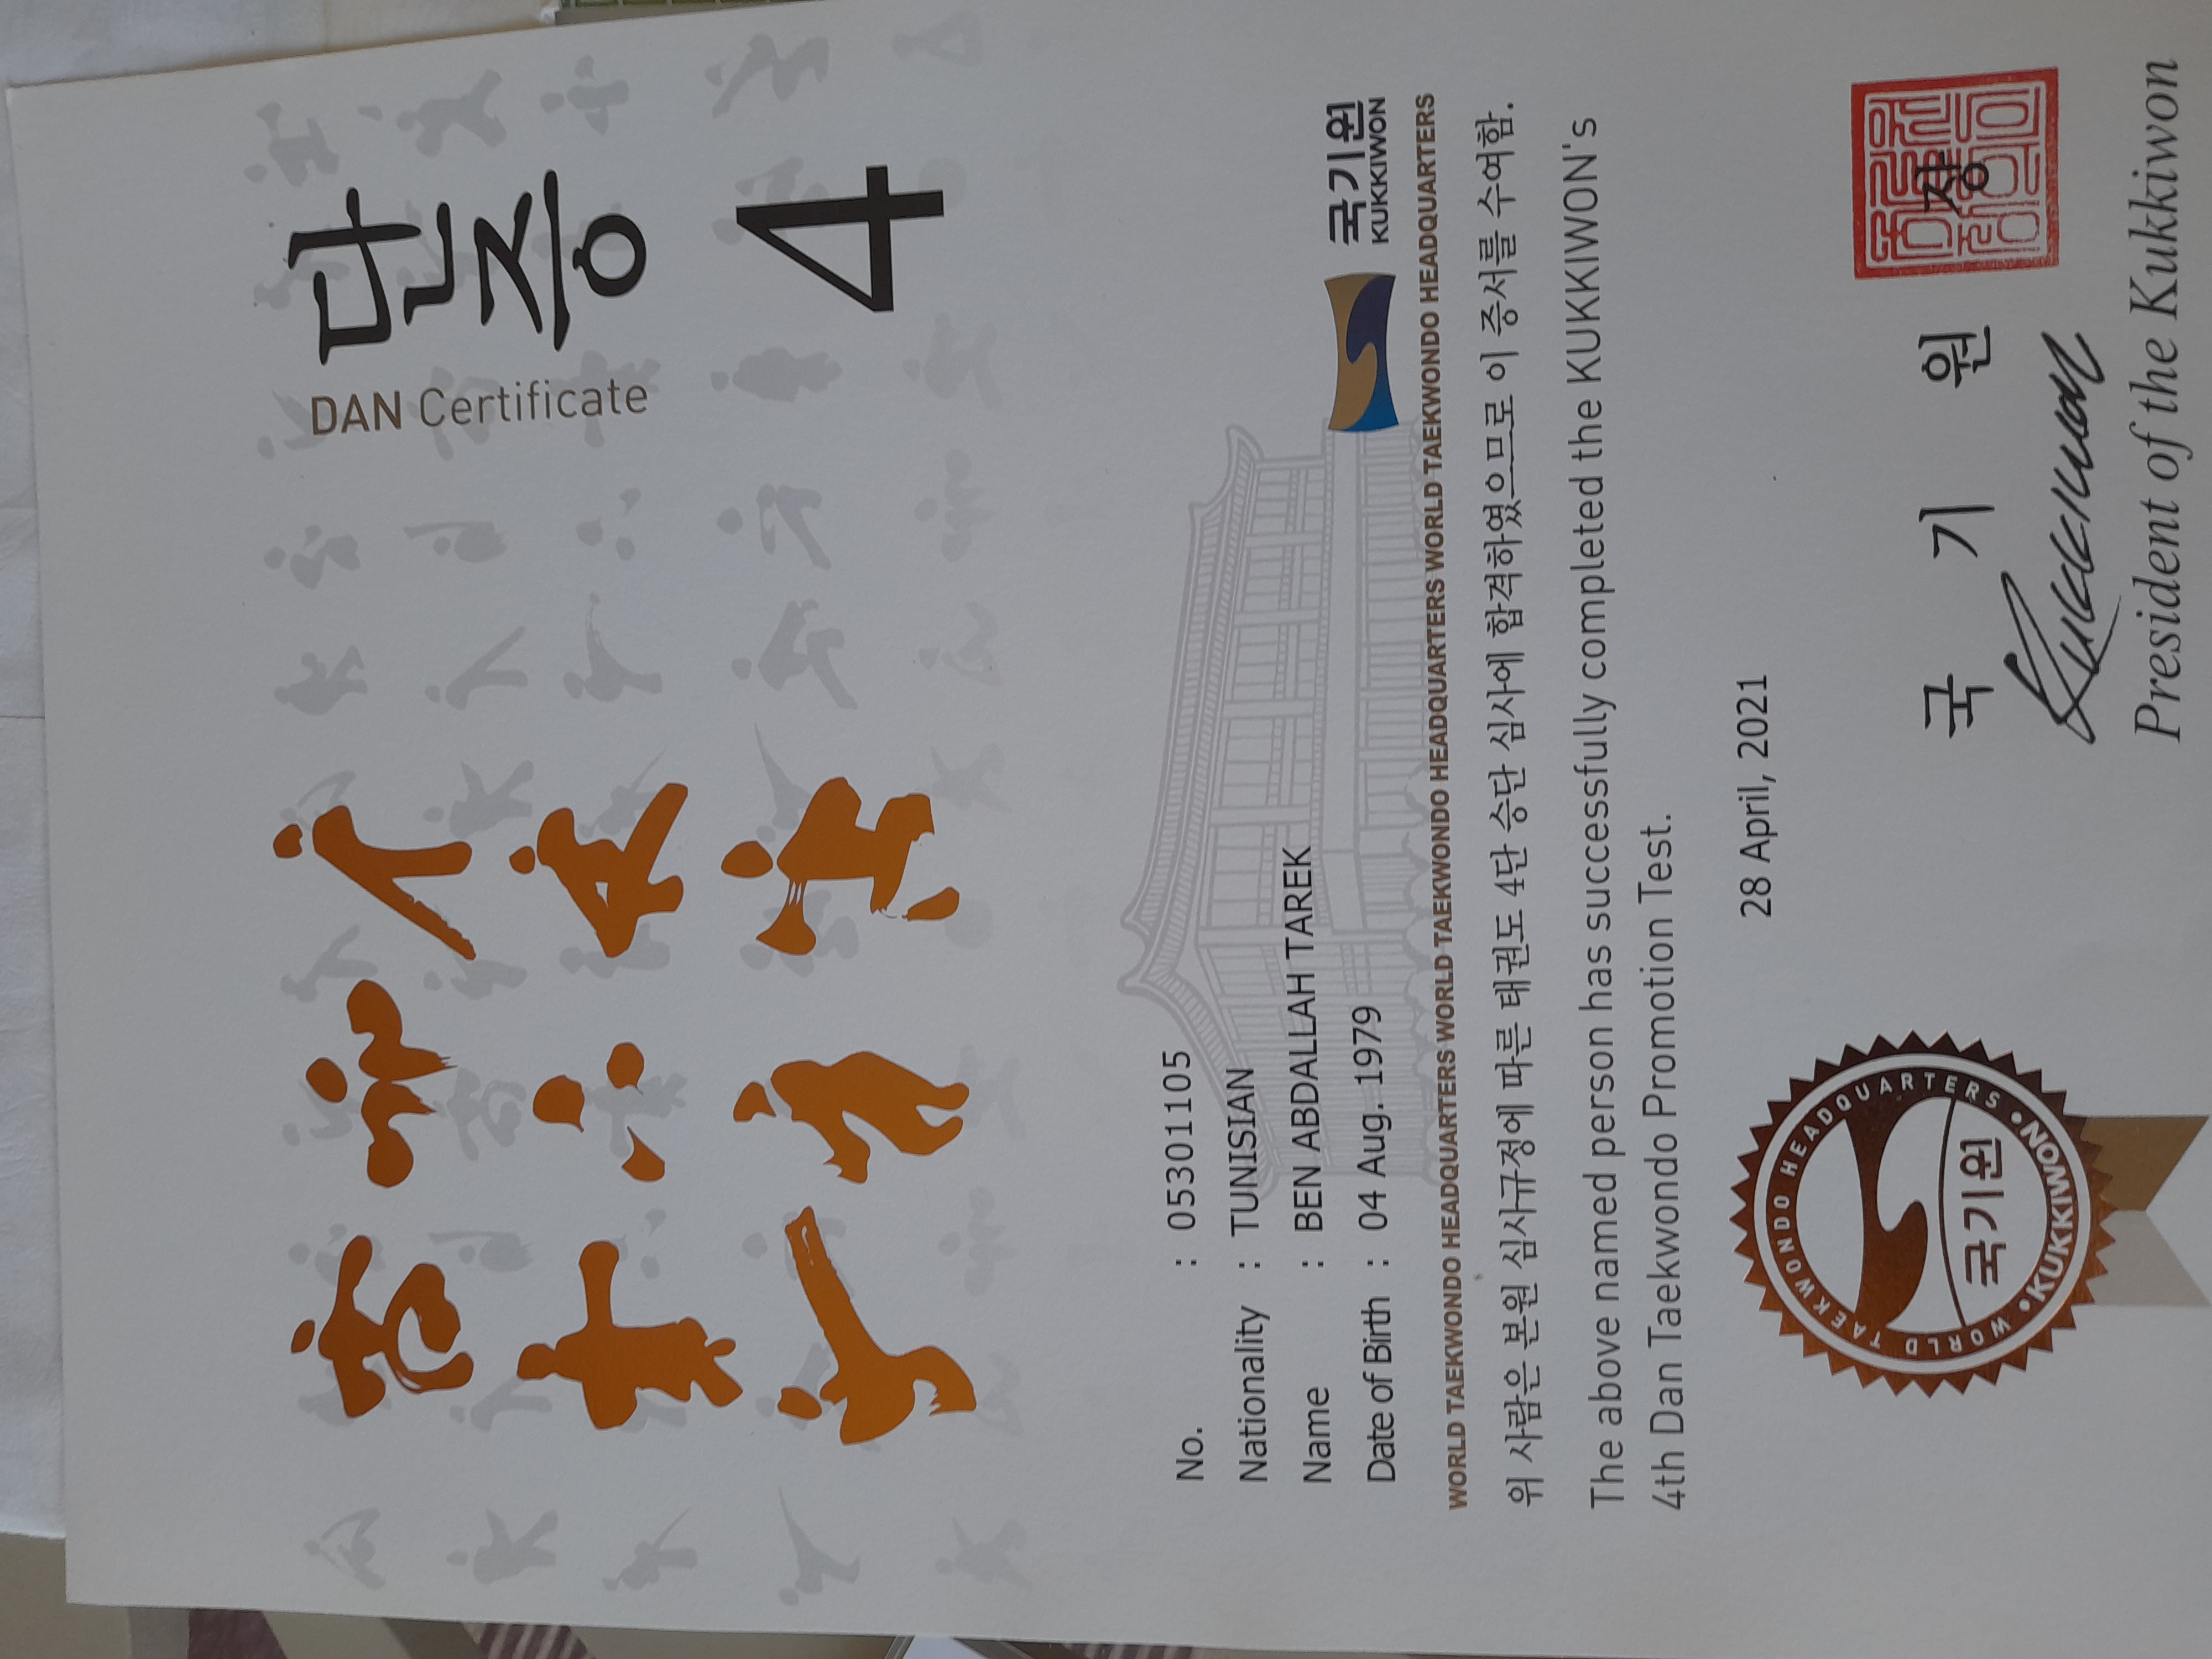 단증
DAN Certificate
4
No. : 05301105
Nationality : TUNISIAN
Name : BEN ABDALLAH TAREK
Date of Birth : 04 Aug. 1979
국기원
KUKKIWON
WORLD TAEKWONDO HEADQUARTERS WORLD TAEKWONDO HEADQUARTERS WORLD TAEKWONDO HEADQUARTERS WORLD TAEKWONDO HEADQUARTERS WORLD TAEKWONDO HEADQUARTERS
위 사람은 본원 심사규정에 따른 태권도 4단 승단 심사에 합격하였으므로 이 증서를 수여함.
The above named person has successfully completed the KUKKIWON's
4th Dan Taekwondo Promotion Test.
28 April, 2021
WORLD TAEKWONDO HEADQUARTERS
국기원
•KUKKIWON•
국 기 원 장
Kukkiwon
President of the Kukkiwon